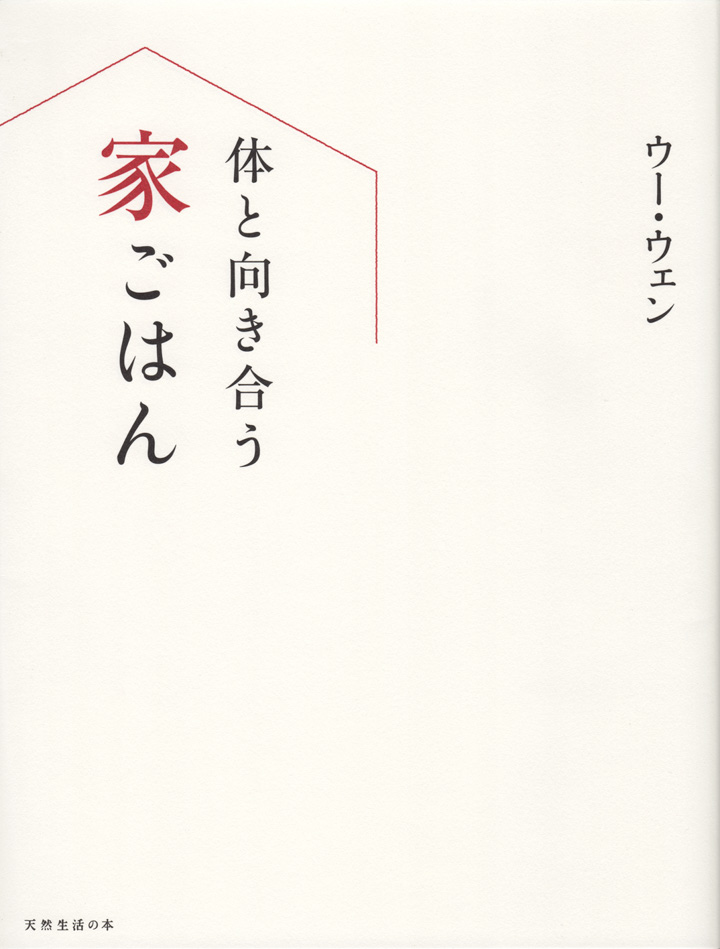 ウー・ウェン
体と向き合う
家ごはん
天然生活の本